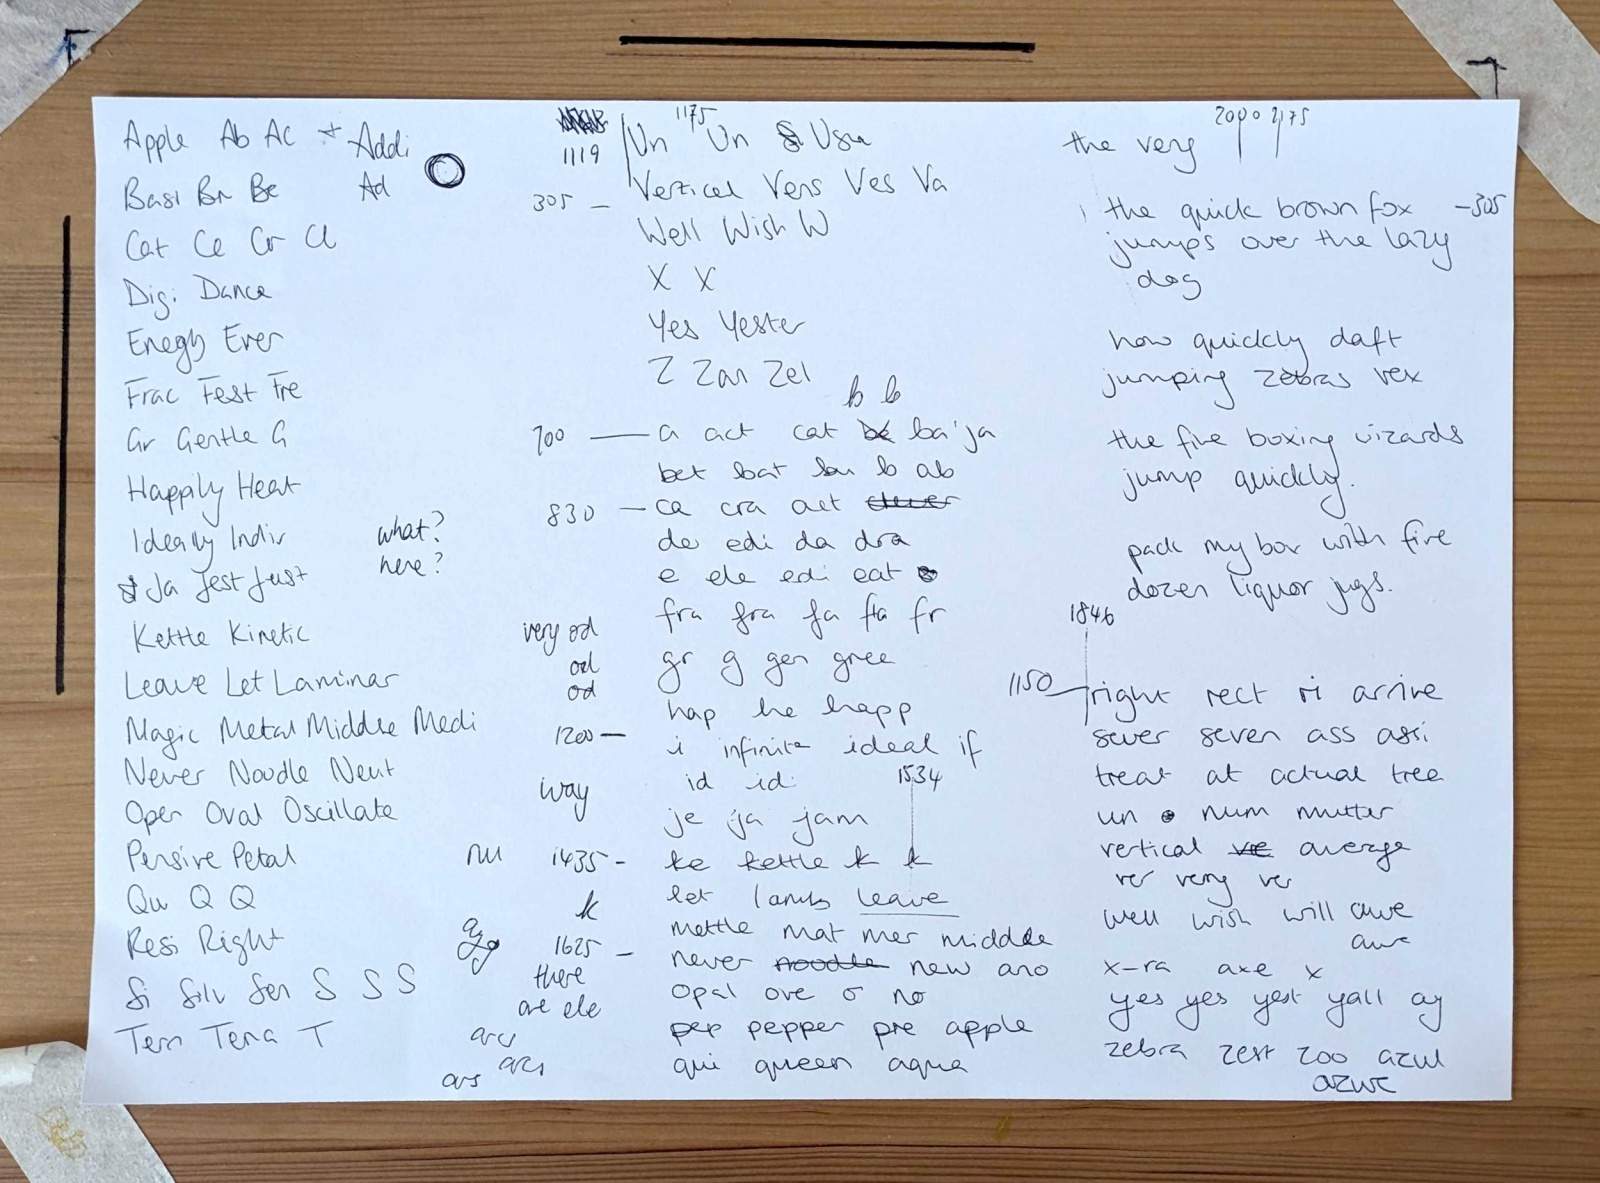 Apple Ab Ac Addi
Ad
Basi Br Be
Cat Ce Cr Cl
Digi Dance
Enegy Ever
Frac Fest Fre
Gr Gentle G
Happily Heat
Ideally Indiv
what?
here?
Ja Jest Just
Kettle Kinetic
Leave Let Laminar
Magic Metal Middle Medi
Never Noodle Neut
Open Oval Oscillate
Pensive Petal
Qu Q Q
Resi Right
Si Silv Sen S S S
Tern Terra T
1119
305
700
830
very od
od
od
1200
way
nu 1435
k
1625
there
are ele
1175
Un Un Usu
Vertical Vers Ves Va
Well Wish W
X X
Yes Yester
Z Zan Zel
b b
a act cat ba ja
bet bat bu b ab
ca cra act clever
de edi da dra
e ele edi eat
fra fra fa fla fr
gr g gen gree
hap he happ
i infinite ideal if
id id
1534
je ja jam
ke kettle k k
let lambs leave
mettle mat mer middle
never noodle new ano
opal ove o no
pep pepper pre apple
qui queen aqua
2000 2175
the very
the quick brown fox -305
jumps over the lazy
dog
how quickly daft
jumping zebras vex
the five boxing wizards
jump quickly.
pack my box with five
dozen liquor jugs.
1846
1150
right rect ri arrive
sever seven ass assi
treat at actual tree
un num mutter
vertical ve average
ver very ve
well wish will awe
awe
x-ra axe x
yes yes yest yall ay
zebra zest zoo azul
azure